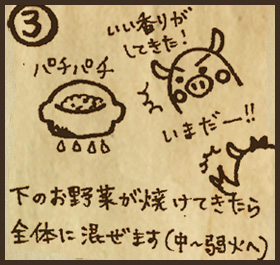 ③
いい香りが
してきた!
パチパチ
いまだー!!
下のお野菜が焼けてきたら
全体に混ぜます(中〜弱火へ)